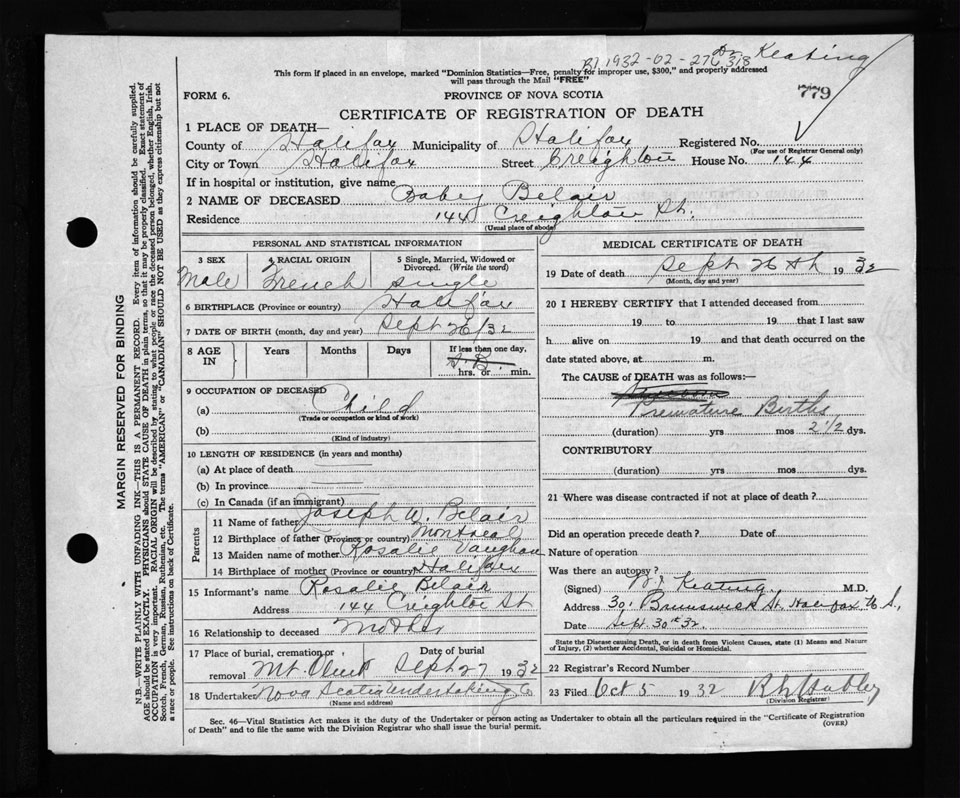 B1.1932-02-276318 Dr Keating
This form if placed in an envelope, marked "Dominion Statistics—Free, penalty for improper use, $300," and properly addressed
will pass through the Mail "FREE"
FORM 6. PROVINCE OF NOVA SCOTIA 779
CERTIFICATE OF REGISTRATION OF DEATH
1 PLACE OF DEATH—
County of Halifax Municipality of Halifax Registered No.
(For use of Registrar General only)
City or Town Halifax Street Creighton House No. 144
If in hospital or institution, give name
2 NAME OF DECEASED Baby Belair
Residence 144 Creighton St.
(Usual place of abode)
PERSONAL AND STATISTICAL INFORMATION
3 SEX 4 RACIAL ORIGIN 5 Single, Married, Widowed or Divorced. (Write the word)
Male French single
6 BIRTHPLACE (Province or country) Halifax
7 DATE OF BIRTH (month, day and year) Sept 26/32
8 AGE IN Years Months Days If less than one day,
S.B.
hrs. or min.
9 OCCUPATION OF DECEASED
(a) Child
(Trade or occupation or kind of work)
(b)
(Kind of industry)
10 LENGTH OF RESIDENCE (in years and months)
(a) At place of death
(b) In province
(c) In Canada (if an immigrant)
Parents
11 Name of father Joseph W. Belair
12 Birthplace of father (Province or country) Montreal
13 Maiden name of mother Rosalie Vaughan
14 Birthplace of mother (Province or country) Halifax
15 Informant's name Rosalie Belair
Address 144 Creighton St
16 Relationship to deceased Mother
17 Place of burial, cremation or removal Date of burial
Mt. Olivet Sept 27 1932
18 Undertaker Nova Scotia Undertaking Co
(Name and address)
MEDICAL CERTIFICATE OF DEATH
19 Date of death Sept 26th 1932
(Month, day and year)
20 I HEREBY CERTIFY that I attended deceased from
19 to 19 that I last saw
h alive on 19 and that death occurred on the
date stated above, at m.
The CAUSE of DEATH was as follows:—
Premature Births
(duration) yrs mos 2 1/2 dys.
CONTRIBUTORY
(duration) yrs mos dys.
21 Where was disease contracted if not at place of death?
Did an operation precede death? Date of
Nature of operation
Was there an autopsy?
(Signed) Keating M.D.
Address 301 Brunswick St, Halifax N.S.,
Date Sept. 30th 32.
State the Disease causing Death, or in death from Violent Causes, state (1) Means and Nature
of Injury, (2) whether Accidental, Suicidal or Homicidal.
22 Registrar's Record Number
23 Filed Oct 5 1932
(Division Registrar)
Sec. 46—Vital Statistics Act makes it the duty of the Undertaker or person acting as Undertaker to obtain all the particulars required in the "Certificate of Registration
of Death" and to file the same with the Division Registrar who shall issue the burial permit. (OVER)
MARGIN RESERVED FOR BINDING
N.B.—WRITE PLAINLY WITH UNFADING INK—THIS IS A PERMANENT RECORD. Every item of information should be carefully supplied.
AGE should be stated EXACTLY. PHYSICIANS should STATE CAUSE OF DEATH in plain terms, so that it may be properly classified. Exact statement of
OCCUPATION is very important. RACIAL ORIGIN will be described by stating to what people or race the deceased person belonged, whether English, Irish,
Scotch, French, German, Russian, Ruthenian, etc. The terms "AMERICAN" or "CANADIAN" SHOULD NOT BE USED as they express citizenship but not
a race or people. See instructions on back of Certificate.